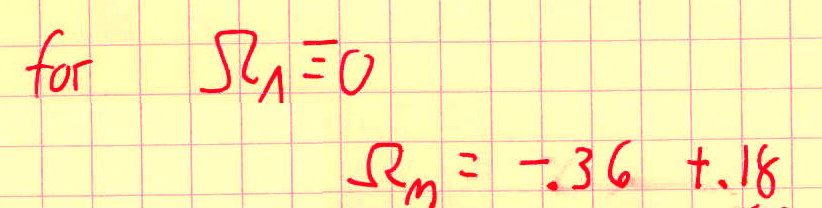 for Ω_Λ ≡ 0
Ω_m = -.36 +.18